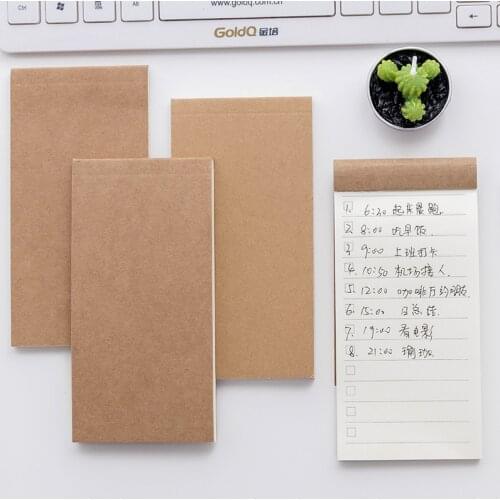 Ctrl
Alt
www.goldq.com.cn
GoldQ 金培
1. 6:30 起床晨跑.
2. 8:00 吃早饭.
3. 9:00 上班打卡
4. 10:50 机场接人.
5. 12:00 咖啡厅约
6. 15:00 日总结.
7. 19:00 看电影
8. 21:00 瑜珈.